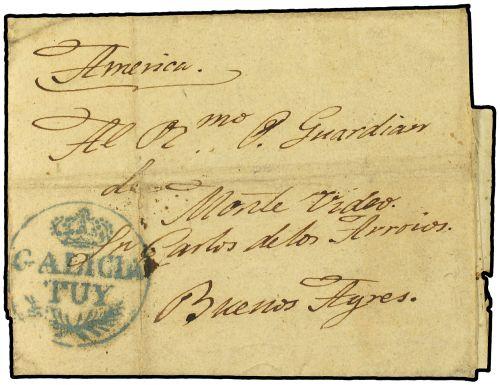 America.
Al R.mo P. Guardian
de
Monte Video.
Sn Carlos de los Arroios.
Buenos Ayres.
GALICIA
TUY